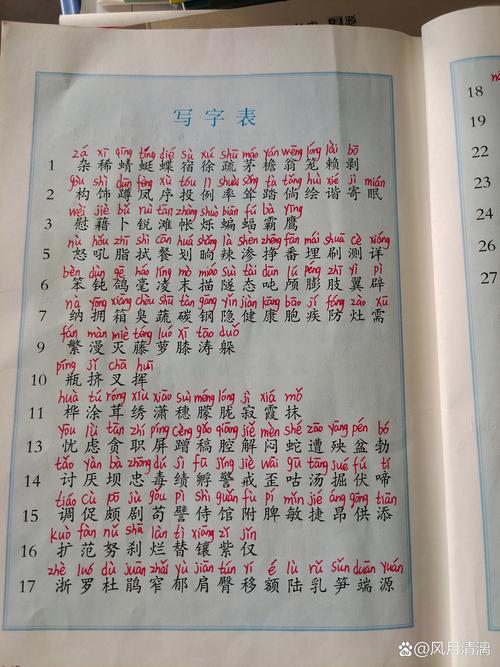 写字表
zá xī qīng tíng dié sù xú shū máo yán wēng lóng lài bō
1 杂 稀 蜻 蜓 蝶 宿 徐 蔬 茅 檐 翁 笼 赖 剥
gòu shì dūn fèng xù tóu lì shuài sǒng tà tǎng huì xié jì mián
2 构 饰 蹲 凤 序 投 例 率 耸 踏 倘 绘 谐 寄 眠
wèi jiè bǔ ruì tān zhàng shuò biān fú bà yīng
3 慰 藉 卜 锐 滩 帐 烁 蝙 蝠 霸 鹰
nù hǒu zhī shì cān huá shǎng là shèn zhēng fān mái shuā cè xiáng
5 怒 吼 脂 拭 餐 划 晌 辣 渗 挣 番 埋 刷 测 详
bèn dùn gē háo líng mò miáo suì tài dūn lú péng zhī yì pì
6 笨 钝 鸽 毫 凌 末 描 隧 态 吨 颅 膨 肢 翼 辟
nà yōng xiāng chòu shū tàn gāng yǐn jiàn kāng bāo jí fáng zào xū
7 纳 拥 箱 臭 蔬 碳 钢 隐 健 康 胞 疾 防 灶 需
fán màn miè téng luó xī tāo duǒ
9 繁 漫 灭 藤 萝 膝 涛 躲
píng jǐ chā huī
10 瓶 挤 叉 挥
huà tú róng xiù xiāo suì méng lóng jì xiá mǒ
11 桦 涂 茸 绣 潇 穗 朦 胧 寂 霞 抹
yōu lǜ tān zhí píng cèng gǎo qiāng jiě mèn shé zāo yāng pén bó
13 忧 虑 贪 职 屏 蹭 稿 腔 解 闷 蛇 遭 殃 盆 勃
tǎo yàn bà zhōng dú jì fū jǐng jiè wāi gū tāng jué fú tí
14 讨 厌 坝 忠 毒 绩 孵 警 戒 歪 咕 汤 掘 伏 啼
tiáo cù pō jù gǒu pì shì guǎn fù pí mǐn jié áng gòng tiān
15 调 促 颇 剧 苟 譬 侍 馆 附 脾 敏 捷 昂 供 添
kuò fàn nǔ shā làn tì xiāng zǐ jǐn
16 扩 范 努 刹 烂 替 镶 紫 仅
zhè luó dù juān zhǎi yù jiān tún yí é lù rǔ sǔn duān yuán
17 浙 罗 杜 鹃 窄 郁 肩 臀 移 额 陆 乳 笋 端 源
18
20
22
23
26
27
风月清漓